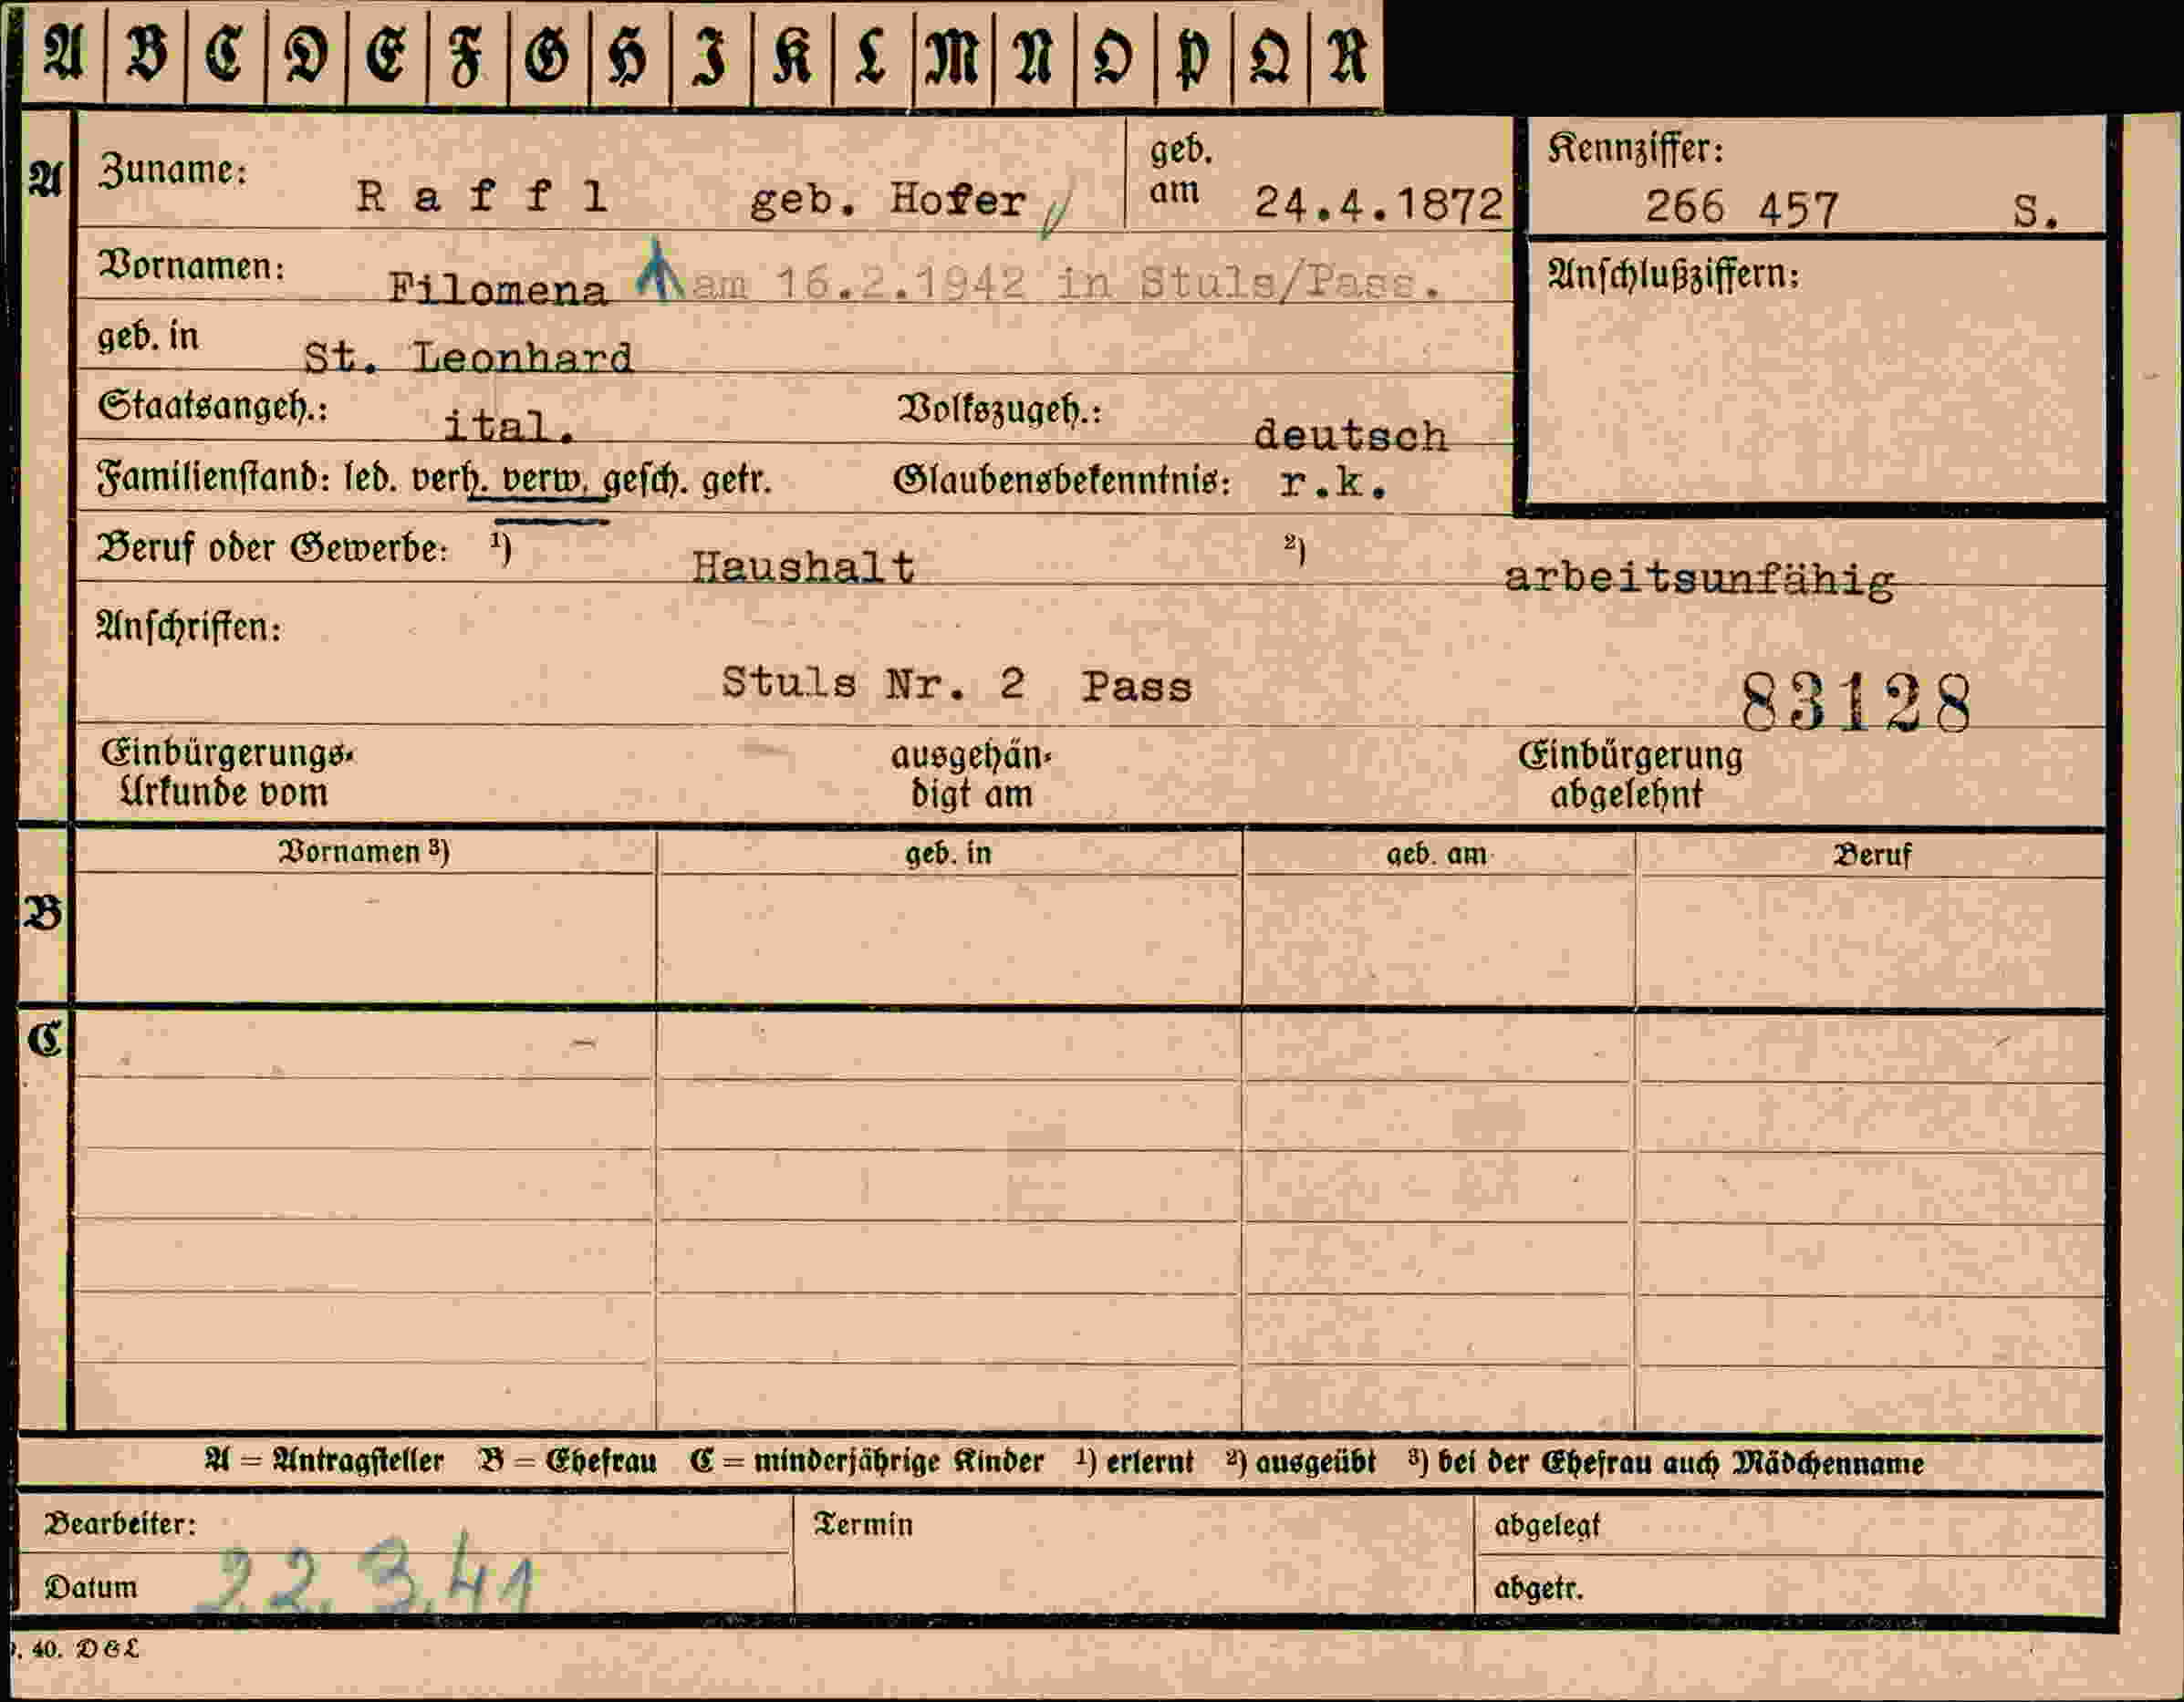 A B C D E F G H I K L M N O P Q R
A Zuname: Raffl geb. Hofer geb. am 24.4.1872 Kennziffer: 266 457 S.
Vornamen: Filomena am 16.2.1942 in Stuls/Pass. Anschlußziffern:
geb. in St. Leonhard
Staatsangeh.: ital. Volkszugeh.: deutsch
Familienstand: led. verh. verw. gesch. getr. Glaubensbekenntnis: r.k.
Beruf oder Gewerbe: 1) Haushalt 2) arbeitsunfähig
Anschriften:
Stuls Nr. 2 Pass 83128
Einbürgerungs- ausgehän- Einbürgerung
Urkunde vom digt am abgelehnt
Vornamen 3) geb. in geb. am Beruf
B
C
A = Antragsteller B = Ehefrau C = minderjährige Kinder 1) erlernt 2) ausgeübt 3) bei der Ehefrau auch Mädchenname
Bearbeiter: Termin abgelegt
Datum 22.3.41 abgetr.
40. DGL